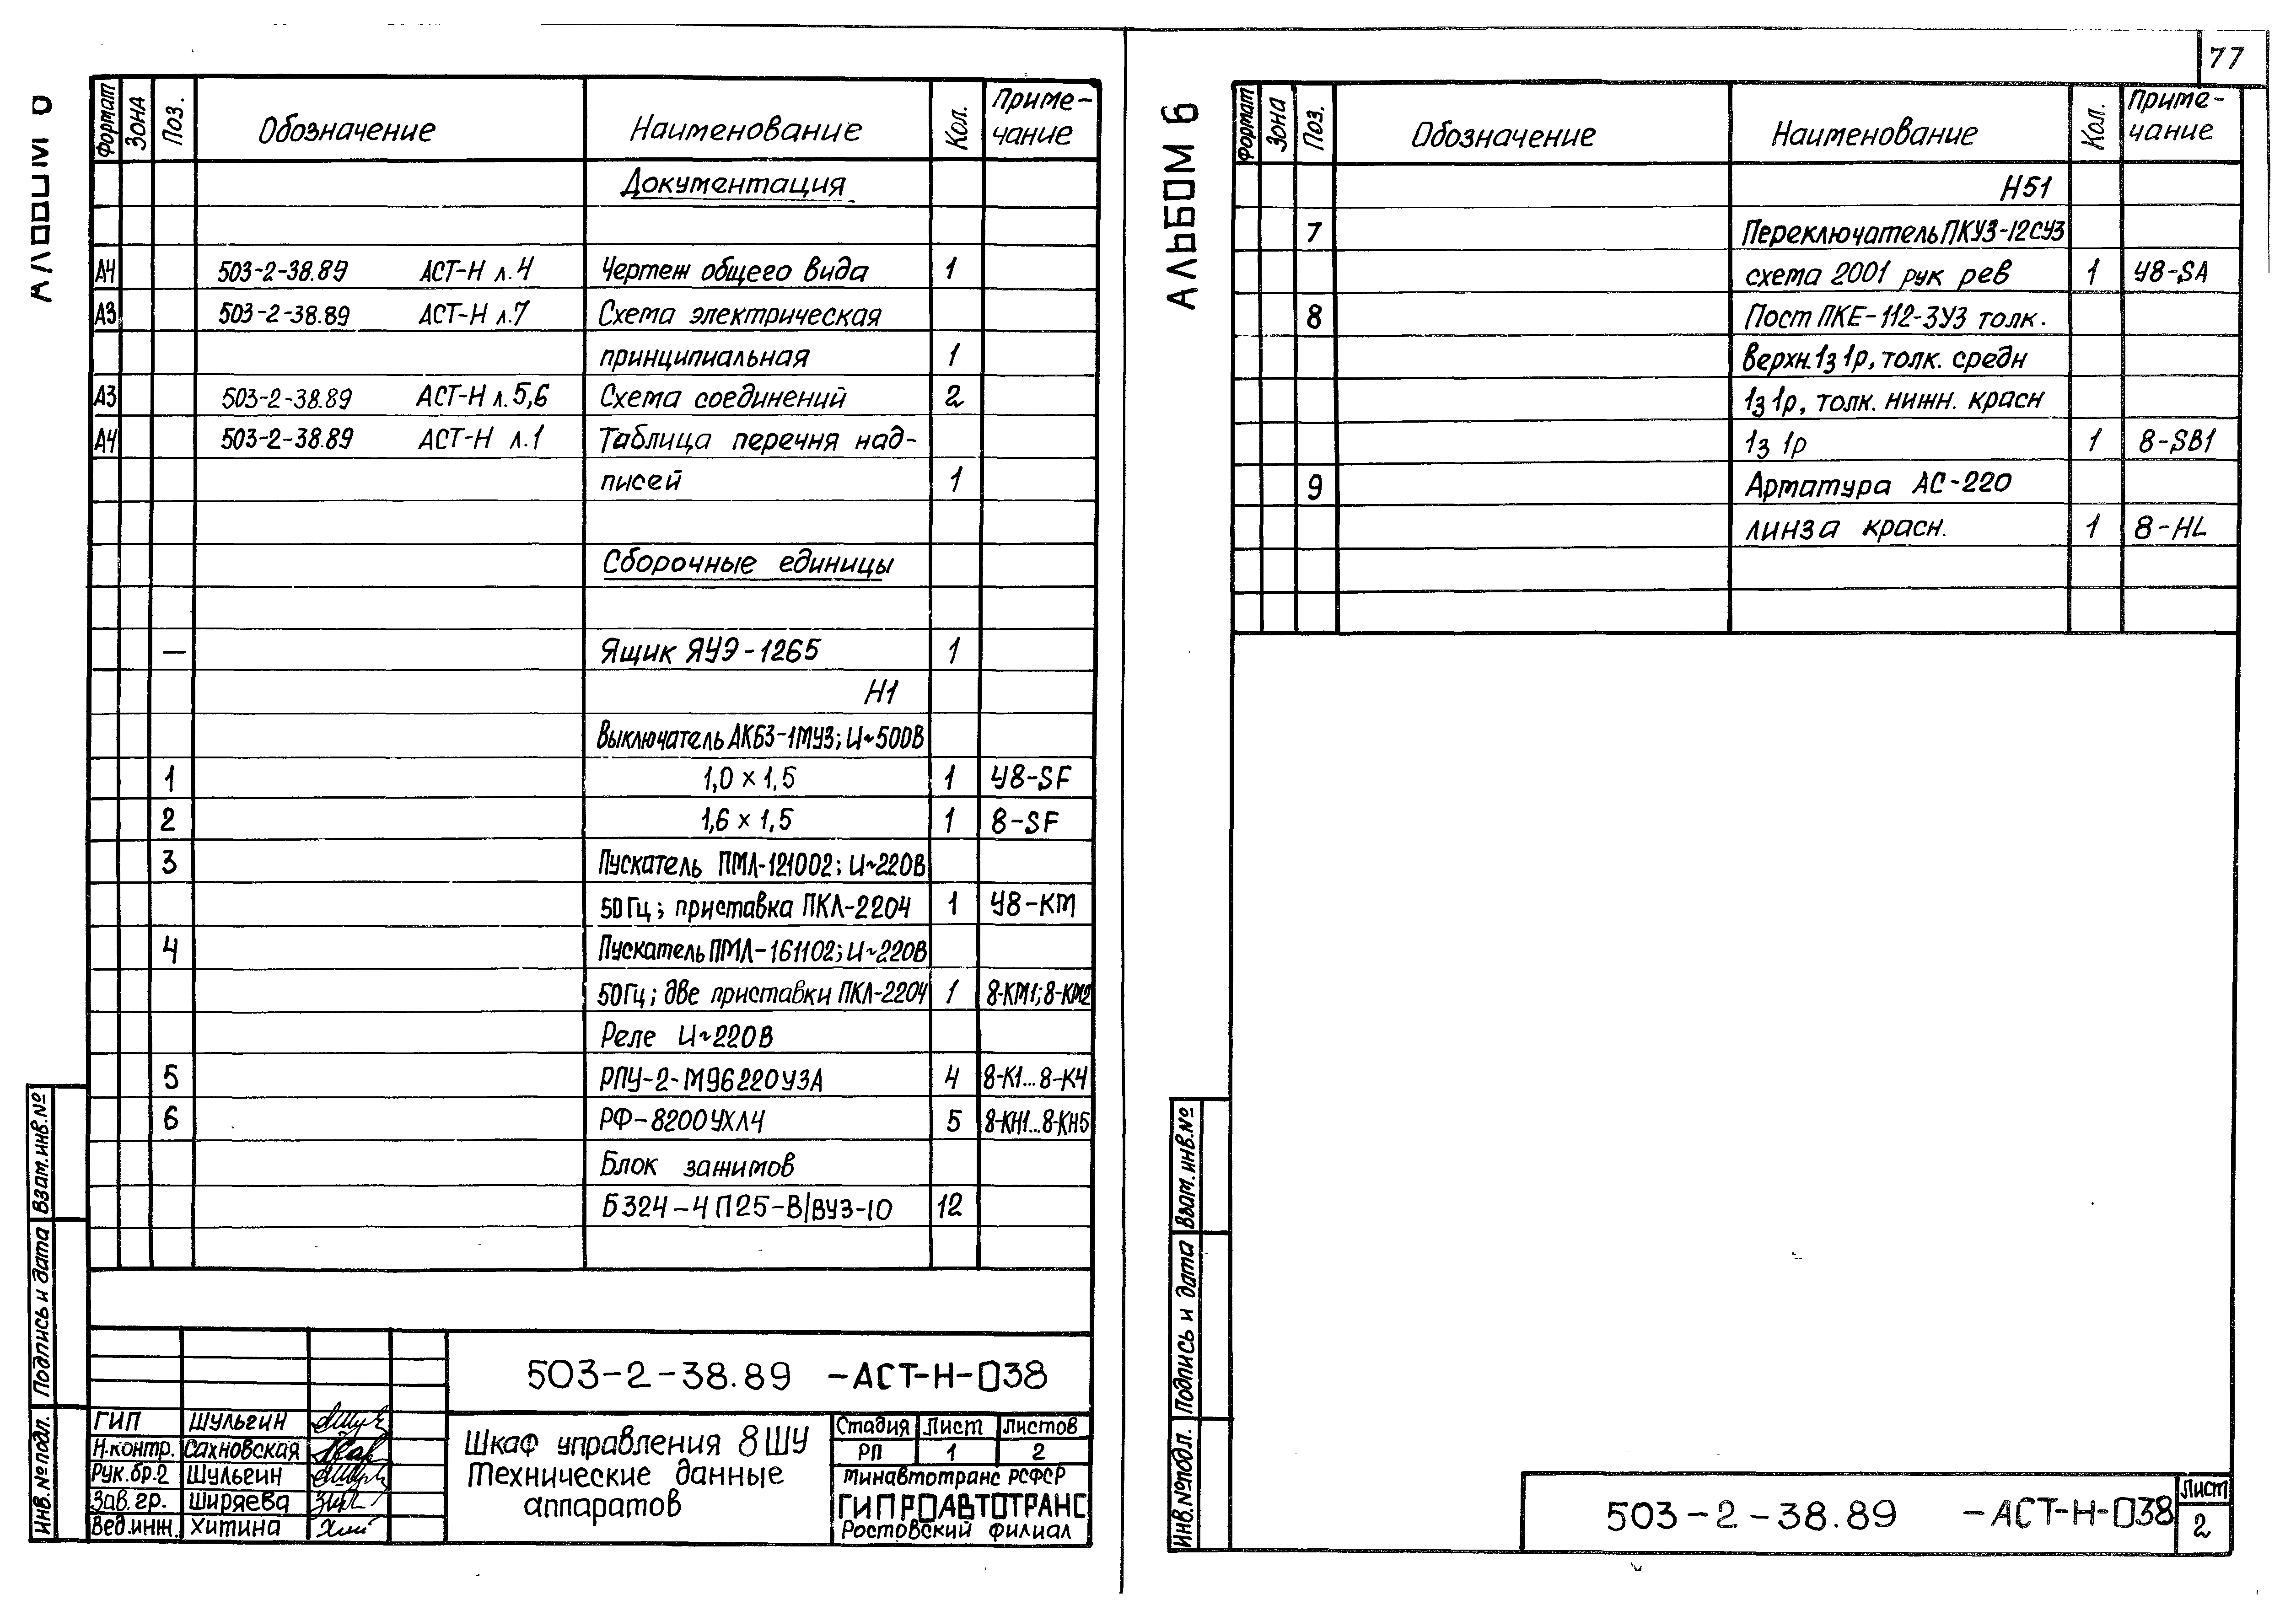 77
Альбом 6
Формат Зона Поз. Обозначение Наименование Кол. Приме-
чание
Документация
А4 503-2-38.89 АСТ-Н л.4 Чертеж общего вида 1
А3 503-2-38.89 АСТ-Н л.7 Схема электрическая
принципиальная 1
А3 503-2-38.89 АСТ-Н л.5,6 Схема соединений 2
А4 503-2-38.89 АСТ-Н л.1 Таблица перечня над-
писей 1
Сборочные единицы
— Ящик ЯУЭ-1265 1
Н1
Выключатель АК63-1МУ3; U~500В
1 1,0 × 1,5 1 У8-SF
2 1,6 × 1,5 1 8-SF
3 Пускатель ПМЛ-121002; U~220В
50Гц; приставка ПКЛ-2204 1 У8-КМ
4 Пускатель ПМЛ-161102; U~220В
50Гц; две приставки ПКЛ-2204 1 8-КМ1; 8-КМ2
Реле U~220В
5 РПУ-2-М96220У3А 4 8-К1...8-К4
6 РФ-8200УХЛ4 5 8-КН1...8-КН5
Блок зажимов
Б324-4П25-В/ВУЗ-10 12
Взам.инв.№
Подпись и дата
Инв.№подл.
503-2-38.89 -АСТ-Н-038
ГИП Шульгин
Н.контр. Сахновская
Рук.бр.2 Шульгин
Зав.гр. Ширяева
Вед.инж. Хитина
Шкаф управления 8ШУ
Технические данные
аппаратов
Стадия Лист Листов
РП 1 2
Минавтотранс РСФСР
ГИПРОАВТОТРАНС
Ростовский филиал
АЛЬБОМ 6
Формат Зона Поз. Обозначение Наименование Кол. Приме-
чание
Н51
7 Переключатель ПКУ3-12СУ3
схема 2001 рук рев 1 У8-SA
8 Пост ПКЕ-112-3У3 толк.
верхн. 1з 1р, толк. средн
1з 1р, толк. нижн. красн
1з 1р 1 8-SB1
9 Арматура АС-220
линза красн. 1 8-HL
Взам.инв.№
Подпись и дата
Инв.№подл.
503-2-38.89 -АСТ-Н-038
Лист
2